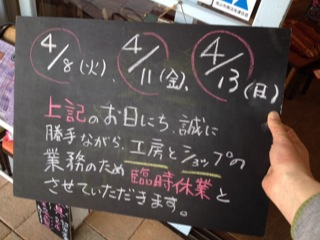 4/8(火)、4/11(金)、4/13(日)
上記のお日にち、誠に
勝手ながら、工房とショップの
業務のため臨時休業と
させていただきます。